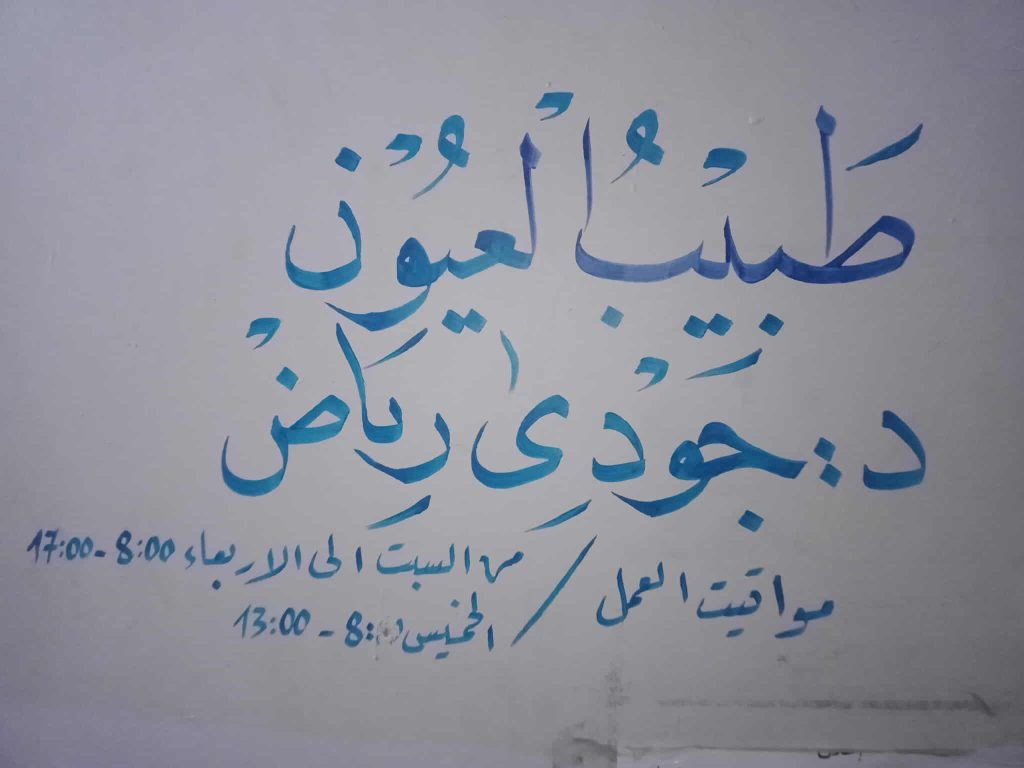 طَبِيْبُ الْعُيُوْن
د. جَوْدِي رِيَاضْ
مواقيت العمل / من السبت الى الاربعاء 8:00 - 17:00
الخميس 8:00 - 13:00